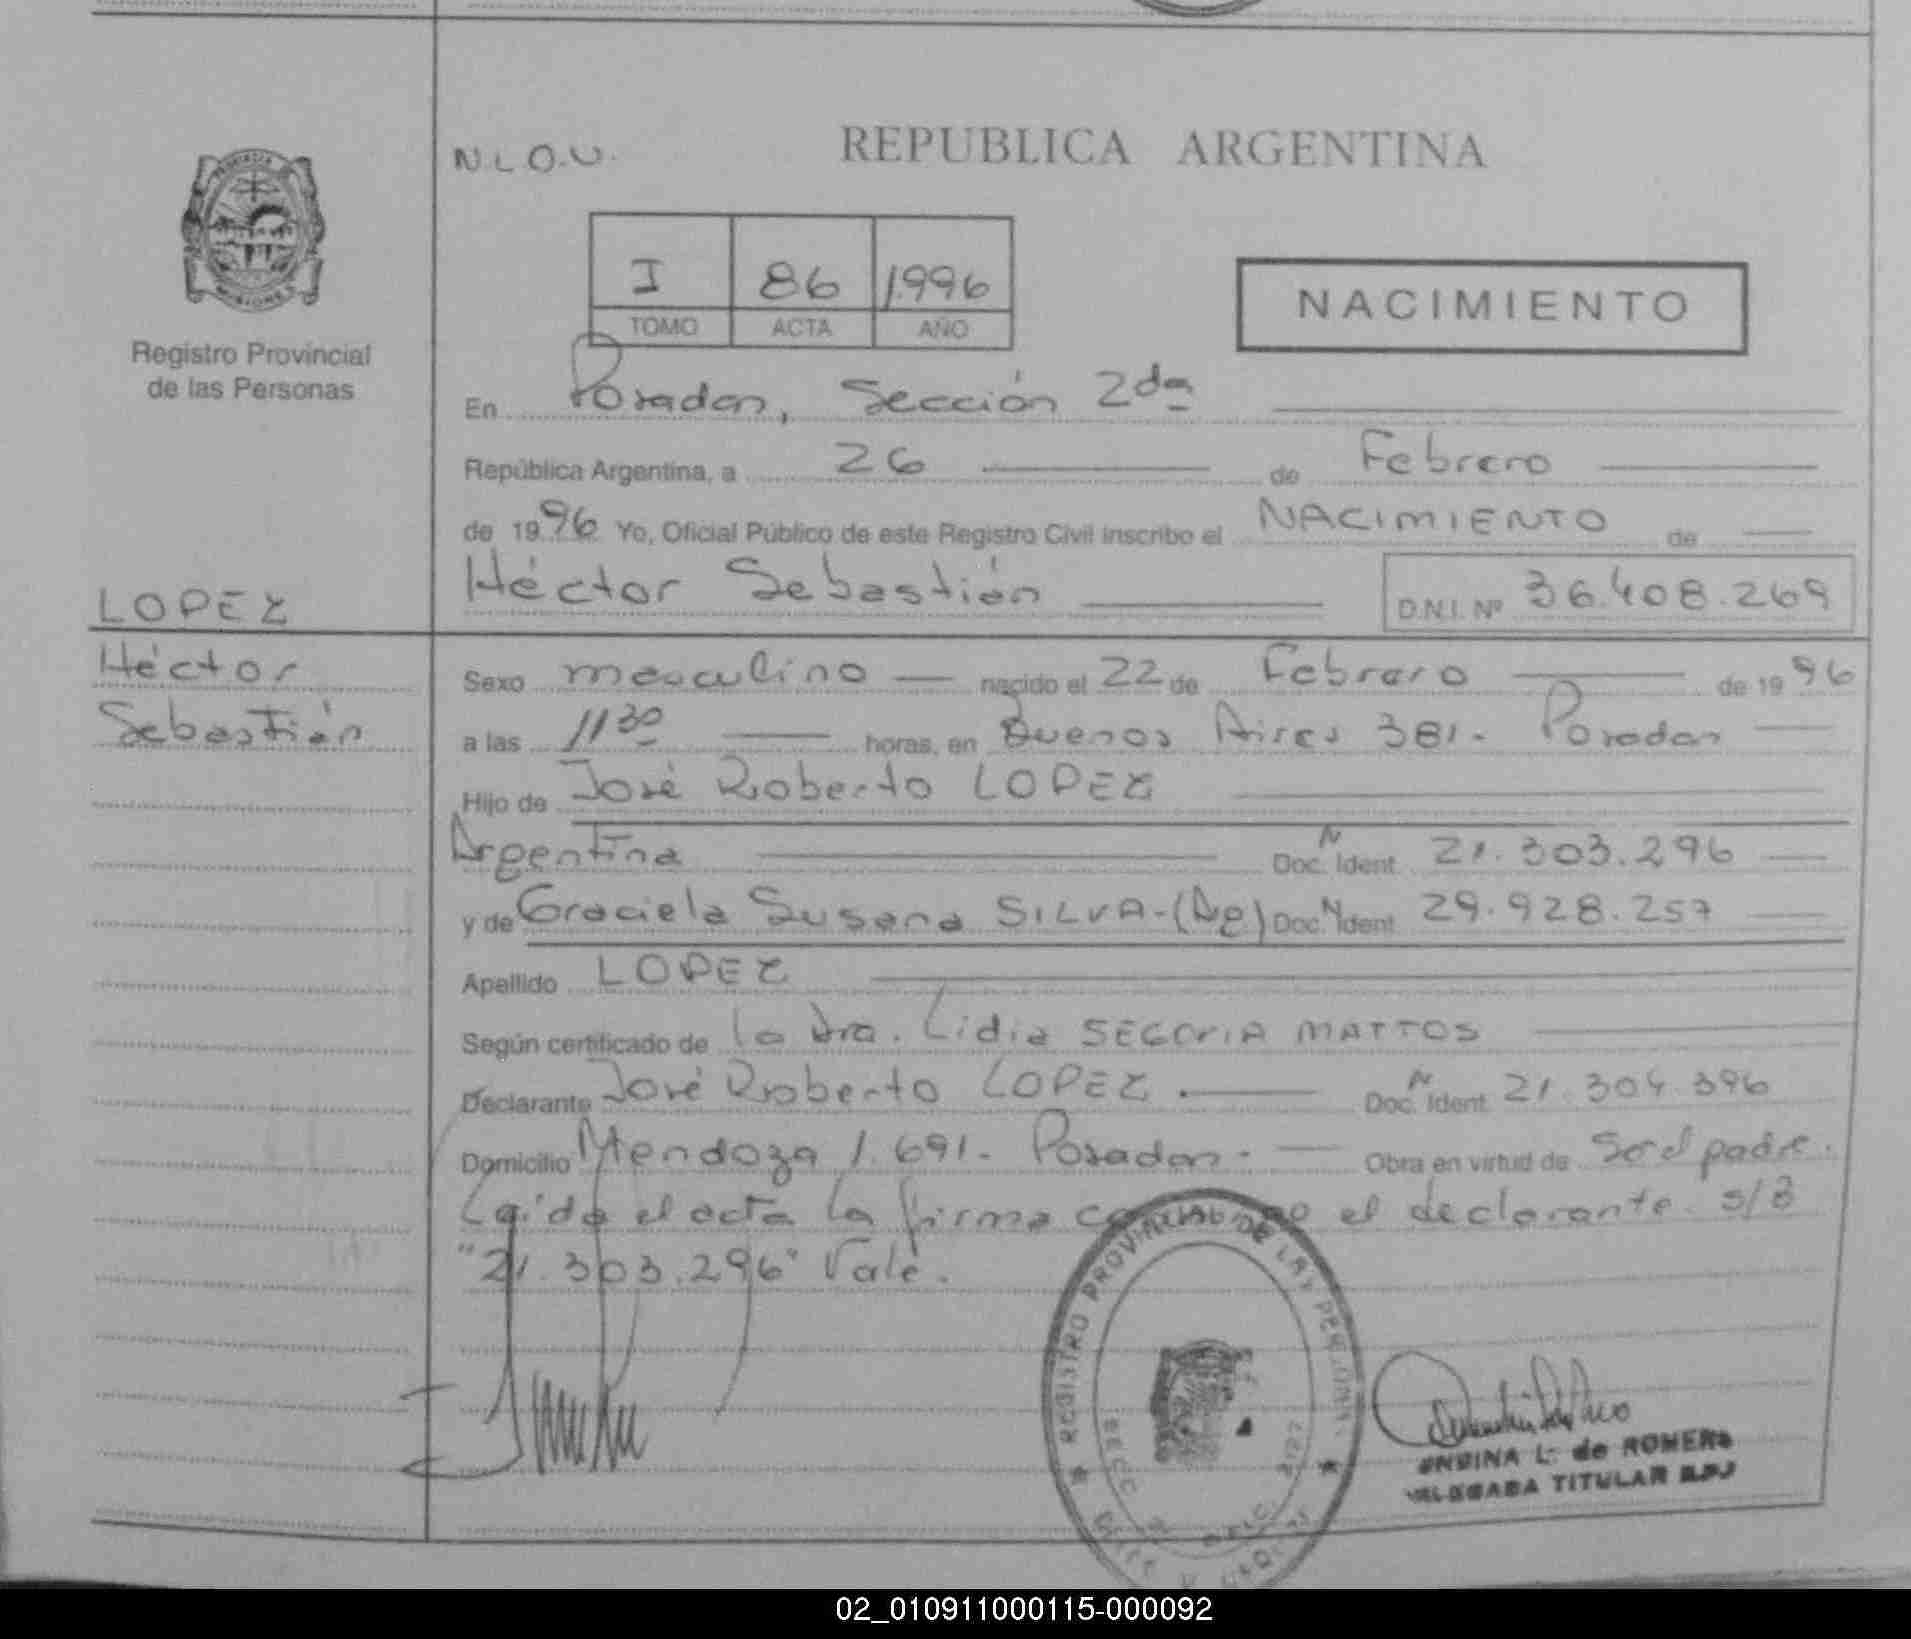 N.L.O.U.
REPUBLICA ARGENTINA
I 86 1.996
TOMO ACTA AÑO
NACIMIENTO
Registro Provincial
de las Personas
En Posadas, Sección 2da
República Argentina, a 26 de Febrero
de 1996 Yo, Oficial Público de este Registro Civil inscribo el NACIMIENTO de
LOPEZ
Héctor Sebastián
D.N.I. Nº 36.408.269
Héctor
Sebastián
Sexo masculino nacido el 22 de Febrero de 1996
a las 11 30 horas, en Buenos Aires 381. Posadas
Hijo de José Roberto LOPEZ
Argentina Doc. N Ident. 21.303.296
y de Graciela Susana SILVA-(Ag) Doc. N Ident. 29.928.257
Apellido LOPEZ
Según certificado de la Dra. Lidia SEGOVIA MATTOS
Declarante José Roberto LOPEZ. Doc. N Ident. 21.304.396
Domicilio Mendoza 1.691. Posadas. Obra en virtud de Ser el padre.
Leída el acta la firma conmigo el declarante. s/B
"21.303.296" Vale.
REGISTRO PROVINCIAL DE LAS PERSONAS
SECC
L. de ROMERO
TITULAR
02_010911000115-000092